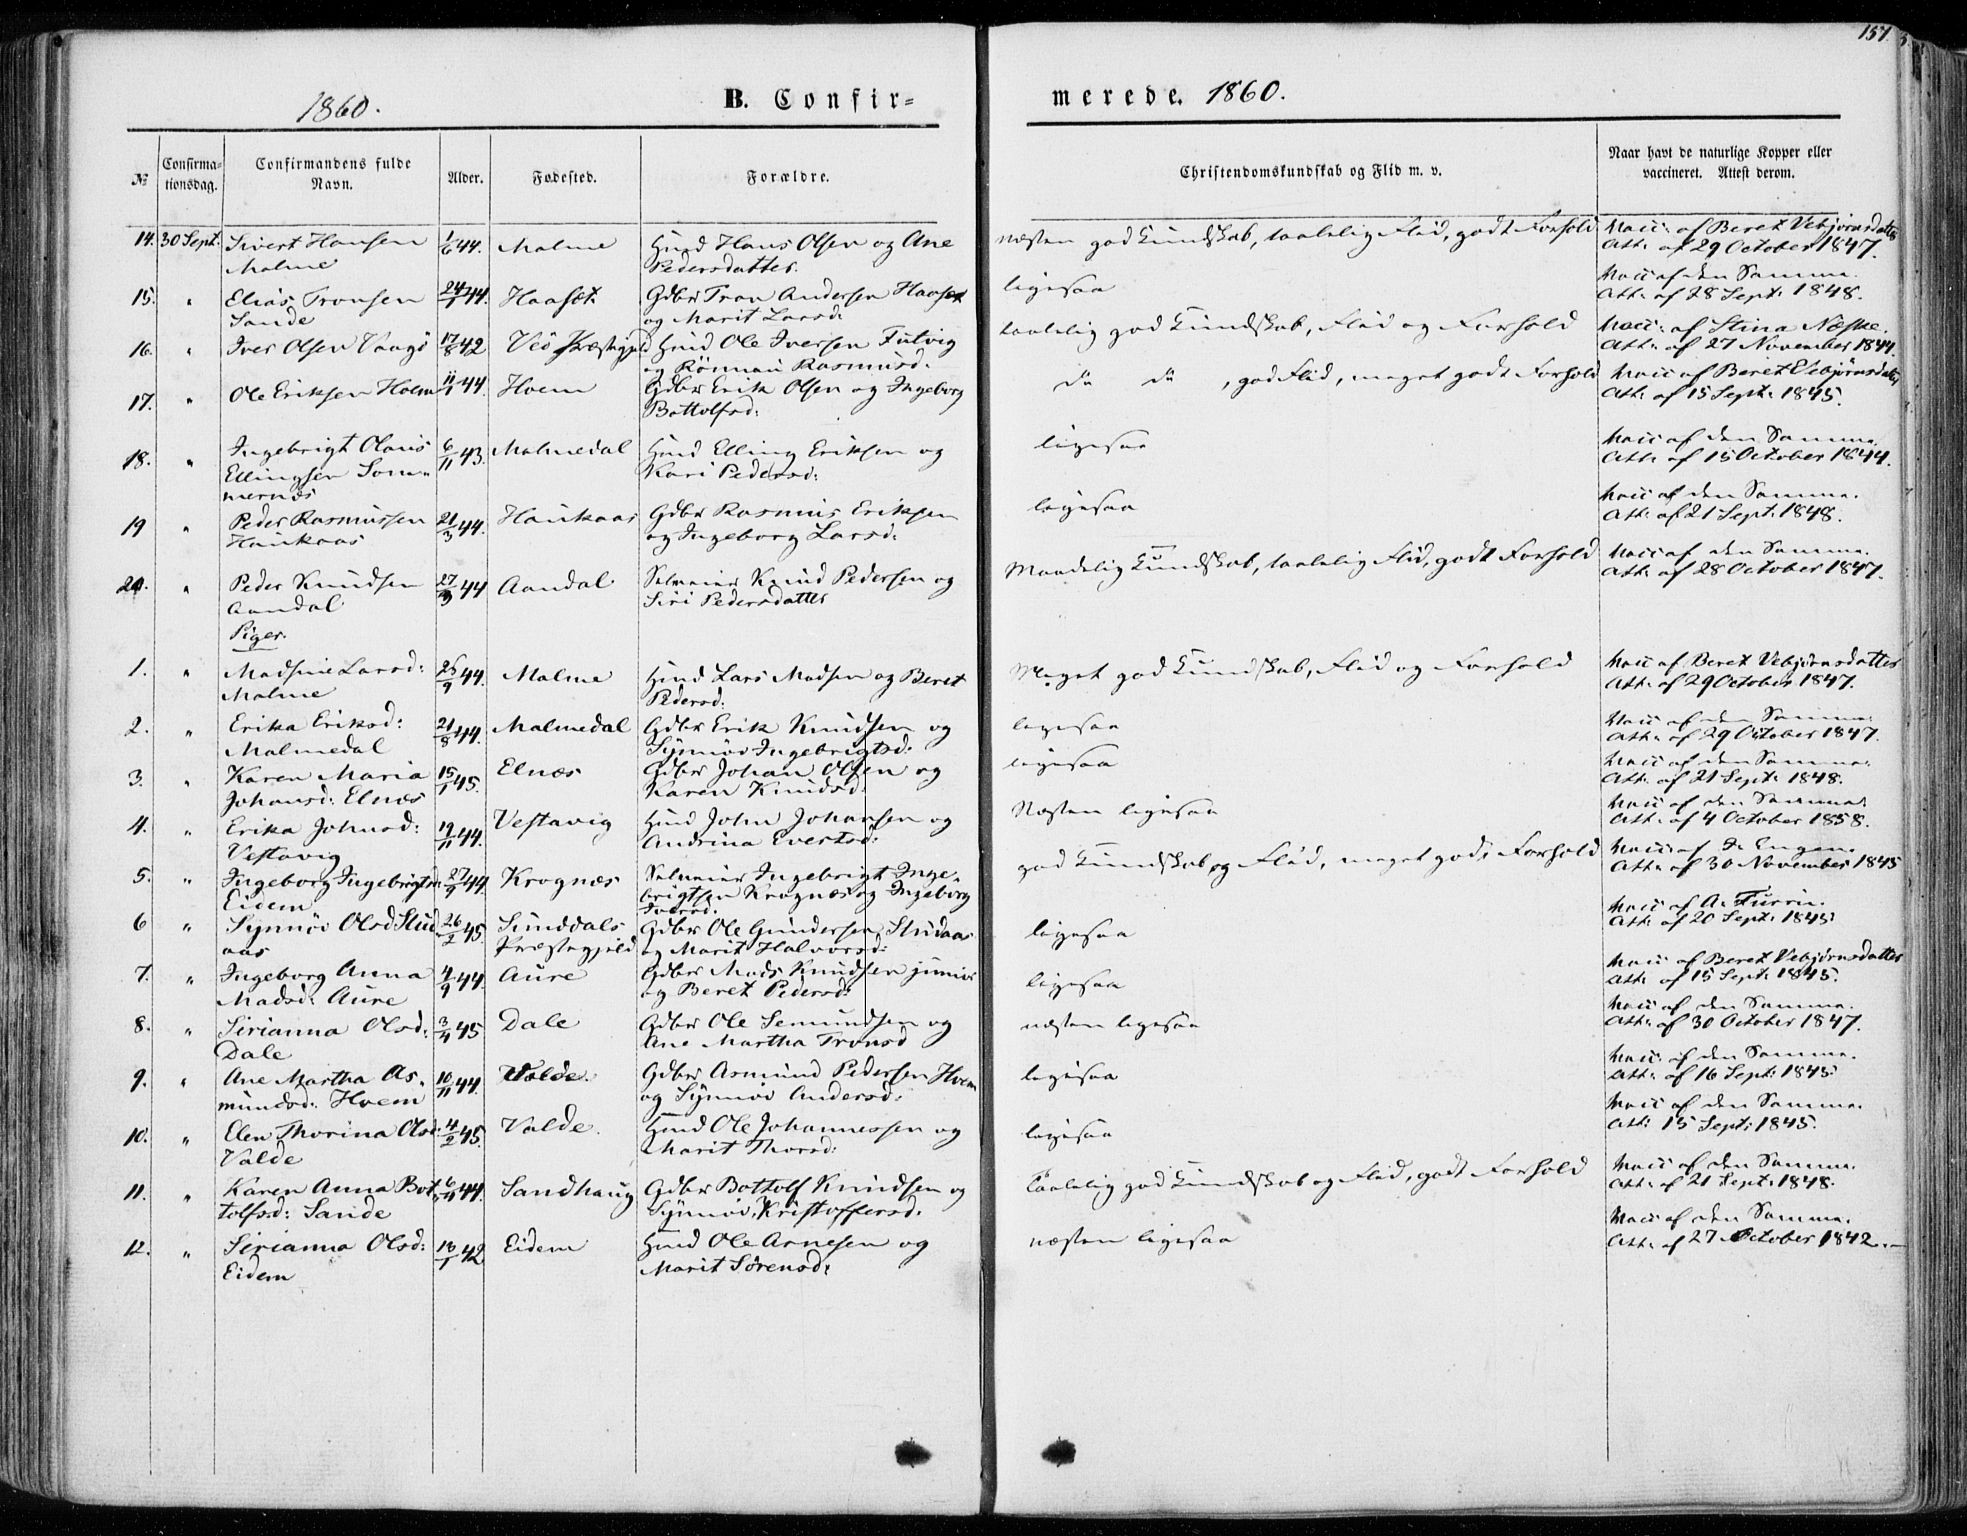 157.
1860. B. Confir= merede. 1860.
№ Confirma-tionsdag. Confirmandens fulde Navn. Alder. Fødested. Forældre. Christendomskundskab og Flid m. v. Naar havt de naturlige Kopper eller vaccineret. Attest derom.
14. 30 Sept. Sivert Hansen 1/6 44. Malme Huusmd Hans Olsen og Ane næsten god Kundskab, taalelig Flid, godt Forhold Vacc: af Beret Vebjørnsdatter
Malme Pedersdatter. Att: af 29 October 1847.
15. " Elias Tronsen 24/1 44. Haaset Gdbr Tron Andersen Haaset ligesaa Vacc af den Samme.
Sande og Marit Larsd: Att: af 28 Sept: 1848.
16. " Iver Olsen Vaagø 17/8 42 Veø Præstegjeld Ole Iversen taalelig god Kundskab, Flid og Forhold Vacc: af Stina Næsse.
og Rasmusd: Att: af 27 November 1844.
17. " Ole Eriksen Hvem 11/1 44. Hvem Gdbr Erik Olsen og Ingeborg do do , god Flid, meget godt Forhold Vacc af Beret Vebjørnsdatter
Bottolfsd: Att: af 15 Sept: 1845.
18. " Ingebrigt Olaus 6/11 43. Malmedal Elling Eriksen og ligesaa Vacc af den Samme.
Ellingsen Som= Kari Pedersd: Att: af 15 October 1844.
mernæs
19 " Peder Rasmussen 21/3 44. Haukaas Gdbr Rasmus Eriksen ligesaa Vacc af den Samme.
Haukaas og Ingeborg Larsd: Att: af 21 Sept. 1848.
20. " Peder Knudsen 27/3 44 Aandal Knud Pedersen og Maadelig Kundskab, taalelig Flid, godt Forhold Vacc af den Samme.
Aandal Siri Pedersdatter Att: af 28 October 1847.
Piger.
1. " Madsine Larsd: 25/9 44. Malme Lars Madsen og Beret Meget god Kundskab, Flid og Forhold Vacc af Beret Vebjørnsdatter
Malme Pedersd: Att: af 29 October 1847.
2. " Erika Eriksd: 21/8 44. Malmedal Gdbr Erik Knudsen og ligesaa Vacc af den Samme.
Malmedal Synnøv Ingebrigtsd: Att: af 29 October 1847.
3. " Karen Maria 15/1 45. Elnæs Gdbr Johan Olsen og ligesaa Vacc af den Samme.
Johansd: Elnæs Karen Knudsd. Att: af 21 Sept: 1848.
4. " Erika Johnsd: 19/11 44. Vestavig John Johansen og Næsten ligesaa Vacc af den Samme.
Vestavig Andrina Evertsd: Att: af 4 October 1858.
5. " Ingeborg Ingebrigtsd: 27/9 44. Krognæs Ingebrigt Inge= god Kundskab og Flid, meget godt Forhold Vacc af Engen.
Eidem brigtsen Krognæs og Ingeborg Att: af 30 November 1845
Iversd.
6 " Synnøv Olsd Stud= 26/2 45 Sunddals Gdbr Ole Gundersen Studaas ligesaa Vacc af A. Furrin.
aas Præstegjeld og Marit Halvorsd: Att: af 20 Sept: 1845
7. " Ingeborg Anna 4/9 44. Aure Gdbr Mads Knudsen junior ligesaa Vacc af Beret Vebjørnsdatter
Madsd: Aure og Beret Pedersd: Att: af 15 Sept: 1845.
8. " Sirianna Olsd: 3/4 45 Dale Gdbr Ole Semundsen og næsten ligesaa Vacc af den Samme.
Dale Ane Martha Tronsd Att: af 30 October 1847.
9. " Ane Martha As= 10/11 44. Valde. Gdbr Asmund Pedersen Hvem ligesaa Vacc: af den Samme.
mundsd: Hvem og Synnøv Andersd: Att: af 16 Sept: 1845
10. " Elen Thorina Olsd: 4/2 45. Valde. Ole Johannessen og ligesaa Vacc af den Samme.
Valde Marit Thorsd: Att: 15 Sept: 1845.
11. " Karen Anna Bot= 6/11 44. Sandhaug Gdbr Bottolf Knudsen og Taalelig god Kundskab og Flid, godt Forhold Vacc af den Samme.
tolfsd: Sande Synnøv Kristoffersd. Att: af 21 Sept: 1848.
12. " Sirianna Olsd: 13/1 42 Eidem Ole Arnesen og næsten ligesaa Vacc af den Samme.
Eidem Marit Sørensd: Att: af 27 October 1842.